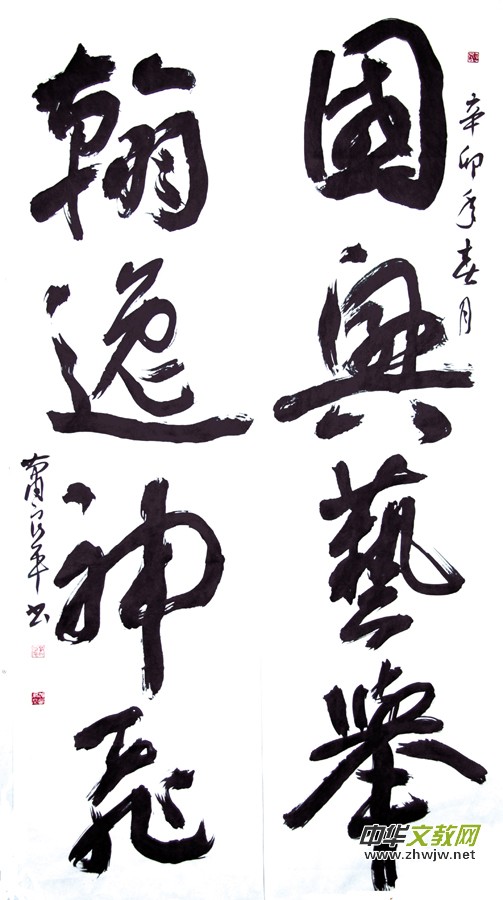 辛卯年春月
國興藝舉
翰逸神飛
蕭良平书
中华文教网
www.zhwjw.net